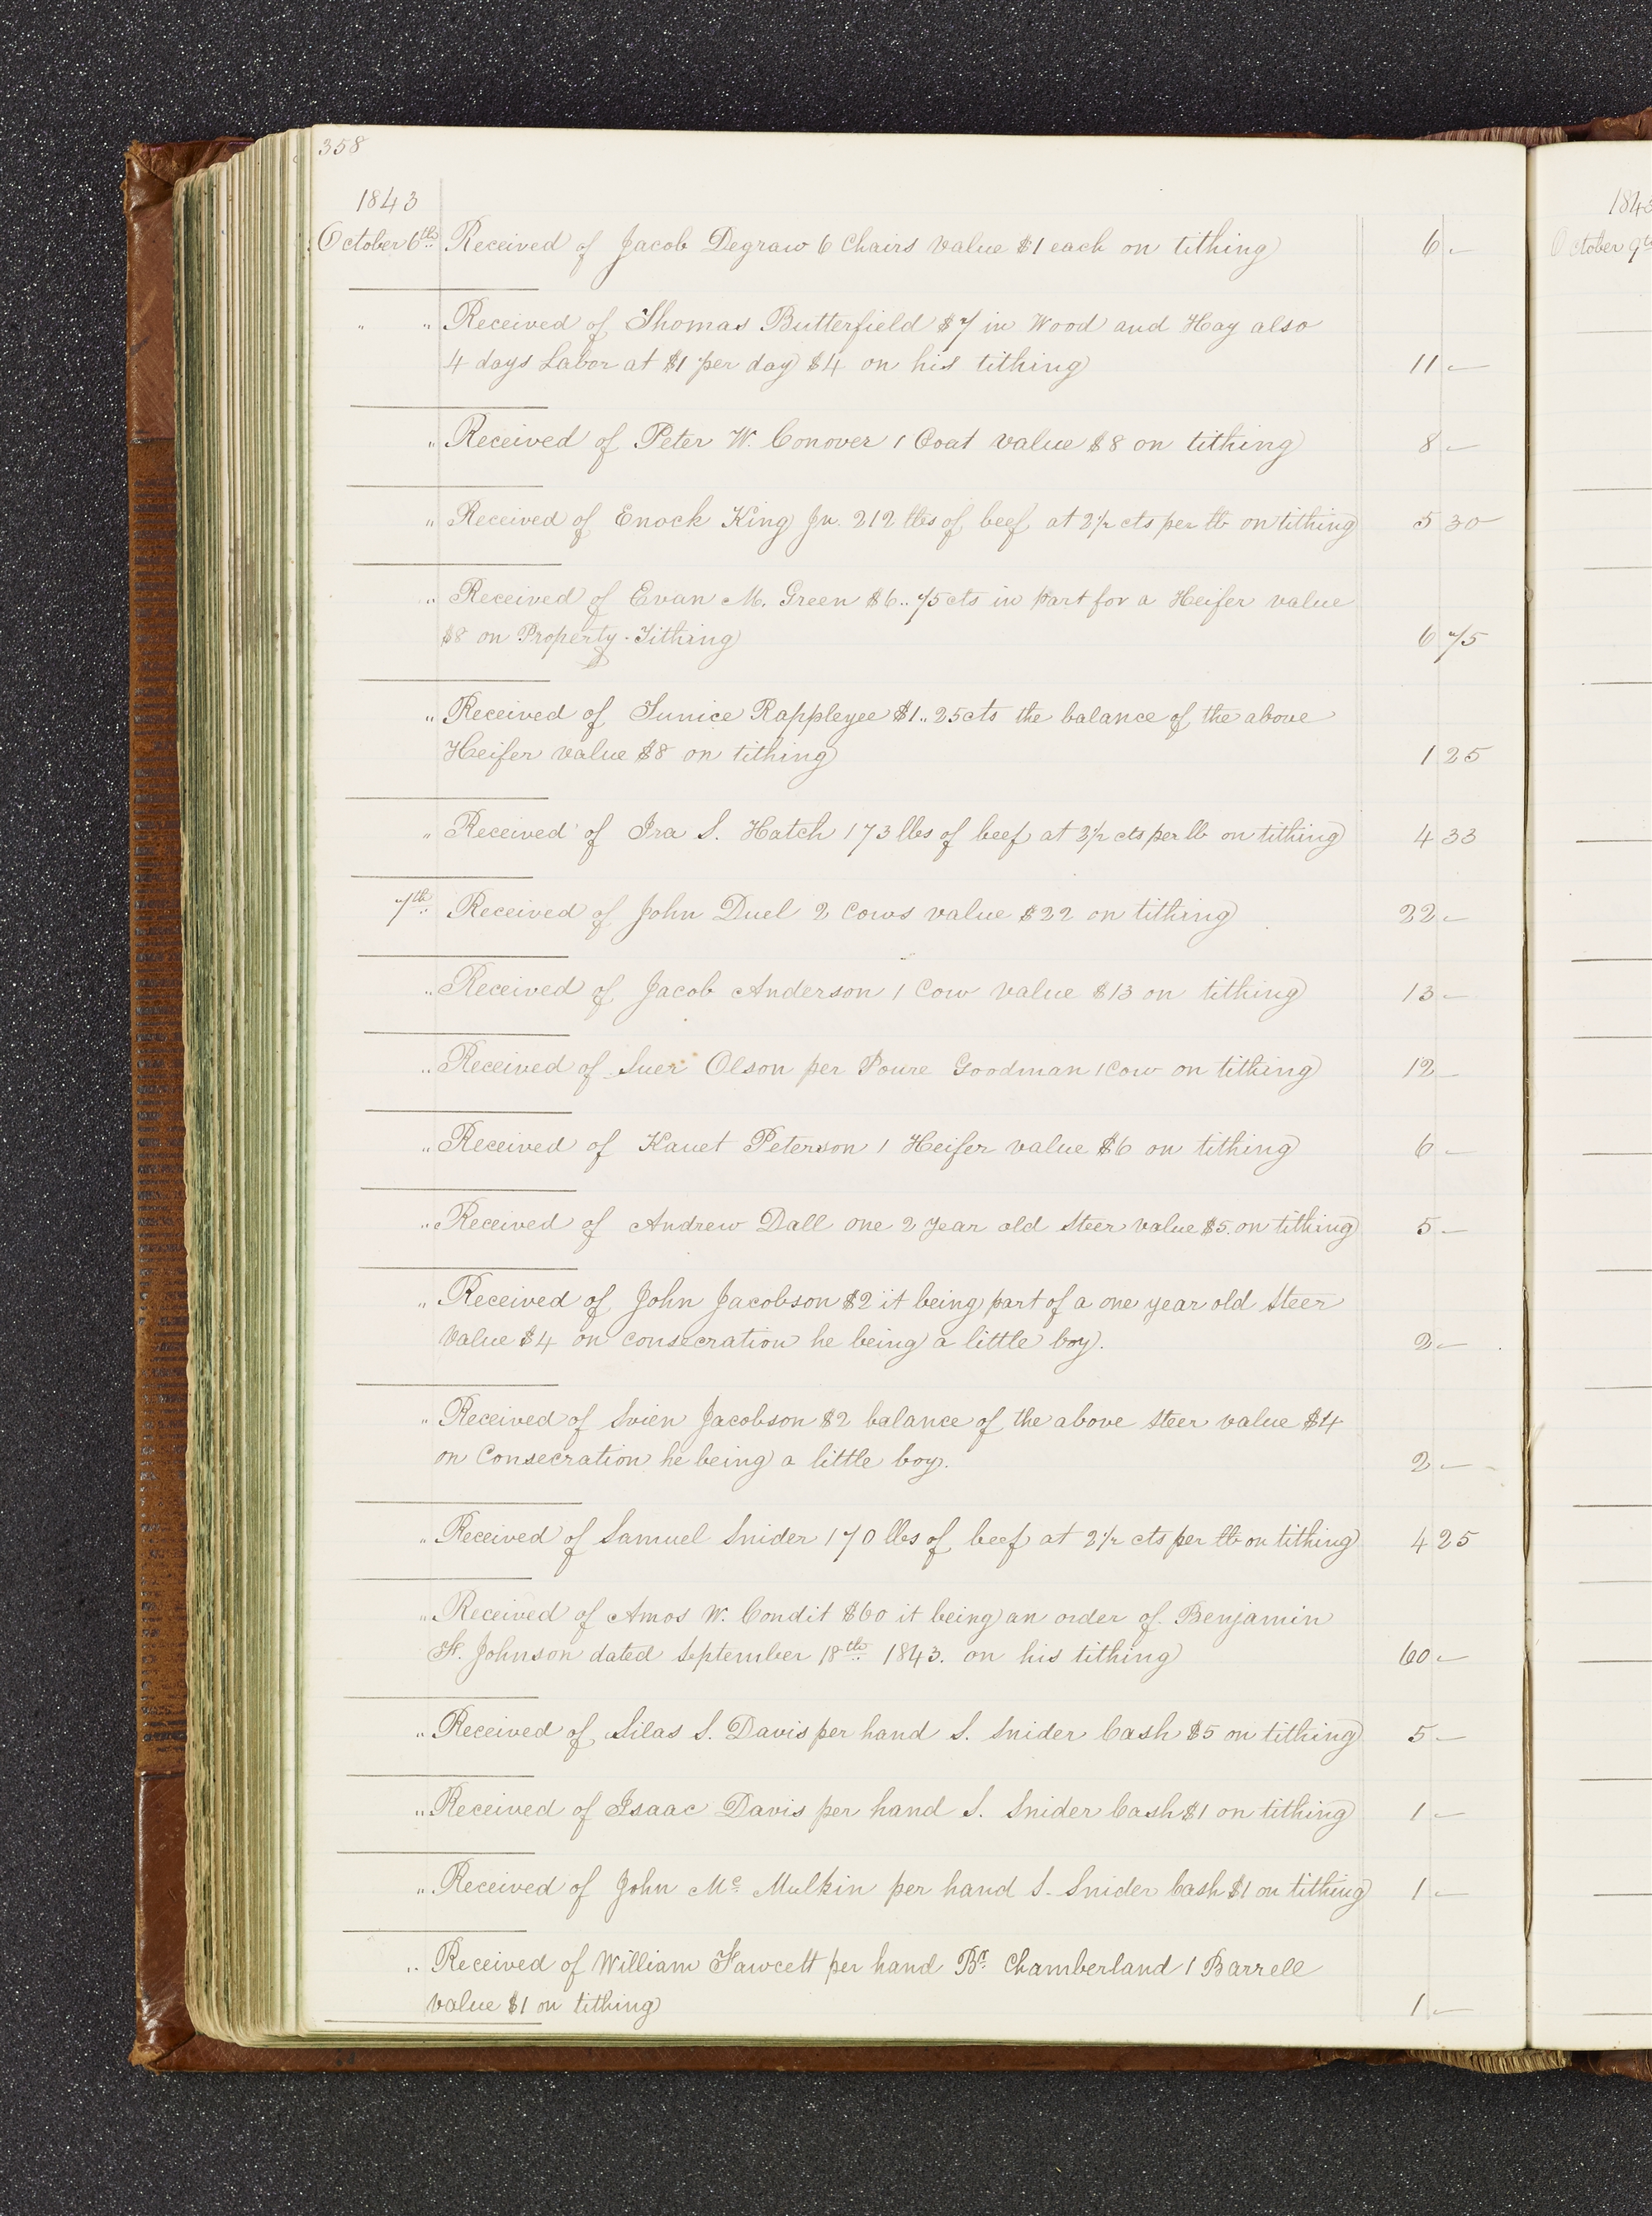 358
1843
October 6th Received of Jacob Degraw 6 Chairs value $1 each on tithing 6 –
" " Received of Thomas Butterfield $7 in Wood and Hay also
4 days Labor at $1 per day $4 on his tithing 11 –
" Received of Peter W. Conover 1 Coat value $8 on tithing 8 –
" Received of Enock King Jn. 212 lbs of beef at 2½ cts per lb on tithing 5 30
" Received of Evan M. Green $6..75cts in part for a Heifer value
$8 on Property Tithing 6 75
" Received of Eunice Rappleyee $1..25cts the balance of the above
Heifer value $8 on tithing 1 25
" Received of Ira S. Hatch 173 lbs of beef at 2½ cts per lb on tithing 4 33
7th Received of John Duel 2 Cows value $22 on tithing 22 –
" Received of Jacob Anderson 1 Cow value $13 on tithing 13 –
" Received of Suer Olson per Goodman 1 Cow on tithing 12 –
" Received of Peterson 1 Heifer value $6 on tithing 6 –
" Received of Andrew Dall one 2 year old Steer value $5 on tithing 5 –
" Received of John Jacobson $2 it being part of a one year old Steer
value $4 on consecration he being a little boy. 2 –
" Received of Svien Jacobson $2 balance of the above Steer value $4
on Consecration he being a little boy. 2 –
" Received of Samuel Snider 170 lbs of beef at 2½ cts per lb on tithing 4 25
" Received of Amos W. Condit $60 it being an order of Benjamin
F. Johnson dated September 18th 1843. on his tithing 60 –
" Received of Silas S. Davis per hand S. Snider Cash $5 on tithing 5 –
" Received of Isaac Davis per hand S. Snider Cash $1 on tithing 1 –
" Received of John Mc Mulkin per hand S. Snider Cash $1 on tithing 1 –
" Received of William Fawcett per hand Br. Chamberland 1 Barrell
value $1 on tithing 1 –
1843
October 9th